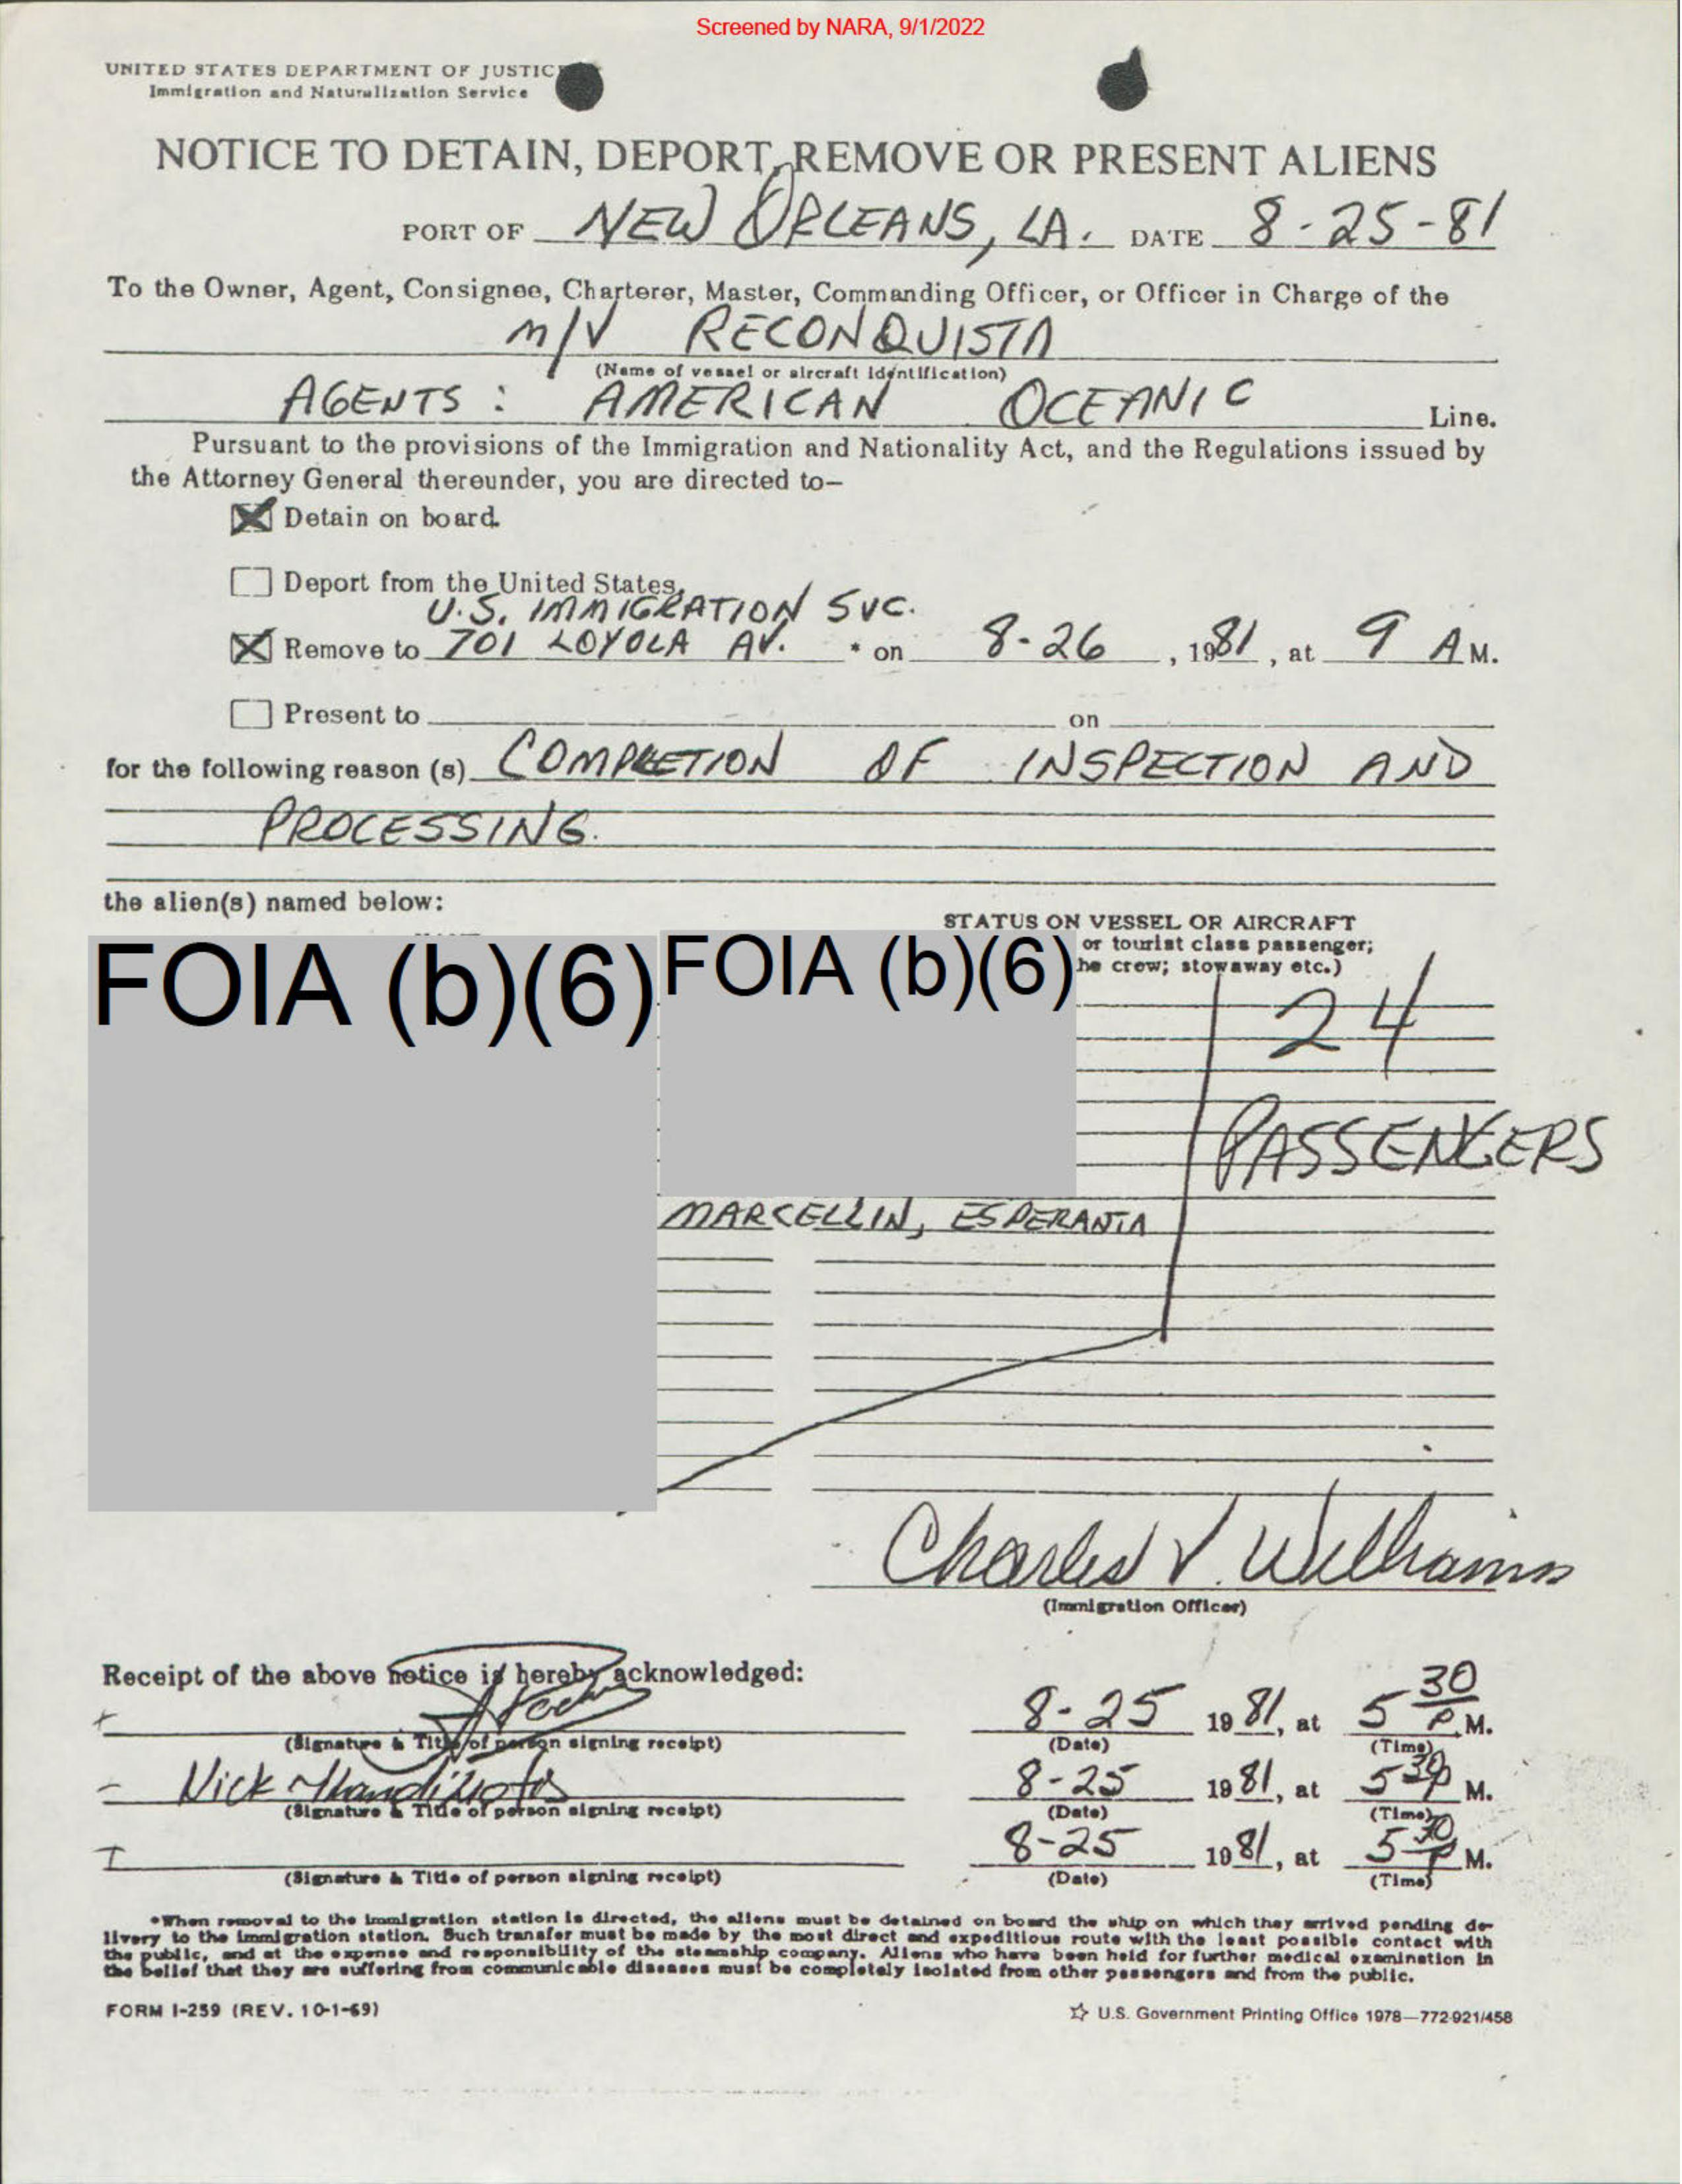 Screened by NARA, 9/1/2022
UNITED STATES DEPARTMENT OF JUSTIC
Immigration and Naturalization Service
NOTICE TO DETAIN, DEPORT, REMOVE OR PRESENT ALIENS
PORT OF NEW ORLEANS, LA. DATE 8-25-81
To the Owner, Agent, Consignee, Charterer, Master, Commanding Officer, or Officer in Charge of the
M/V RECONQUISTA
(Name of vessel or aircraft identification)
AGENTS: AMERICAN OCEANIC Line.
Pursuant to the provisions of the Immigration and Nationality Act, and the Regulations issued by
the Attorney General thereunder, you are directed to—
Detain on board.
Deport from the United States.
U.S. IMMIGRATION SVC.
Remove to 701 LOYOLA AV. * on 8-26, 1981, at 9 AM.
Present to on
for the following reason (s) COMPLETION OF INSPECTION AND
PROCESSING.
the alien(s) named below:
STATUS ON VESSEL OR AIRCRAFT
or tourist class passenger;
he crew; stowaway etc.)
FOIA (b)(6) FOIA (b)(6)
24
PASSENGERS
MARCELLIN, ESPERANTA
Charles V. Williams
(Immigration Officer)
Receipt of the above notice is hereby acknowledged:
8-25 1981, at 5 30 P.M.
(Signature & Title of person signing receipt) (Date) (Time)
Nick 8-25 1981, at 5 30 P M.
(Signature & Title of person signing receipt) (Date) (Time)
8-25 1981, at 5 30 P M.
(Signature & Title of person signing receipt) (Date) (Time)
*When removal to the immigration station is directed, the aliens must be detained on board the ship on which they arrived pending de-
livery to the immigration station. Such transfer must be made by the most direct and expeditious route with the least possible contact with
the public, and at the expense and responsibility of the steamship company. Aliens who have been held for further medical examination in
the belief that they are suffering from communicable diseases must be completely isolated from other passengers and from the public.
FORM I-259 (REV. 10-1-69)
☆ U.S. Government Printing Office 1978—772-921/458